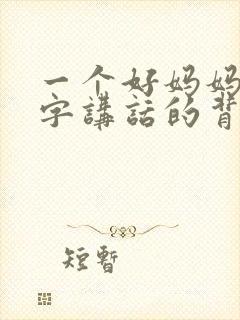 一个好妈妈
字講話的背
短暫